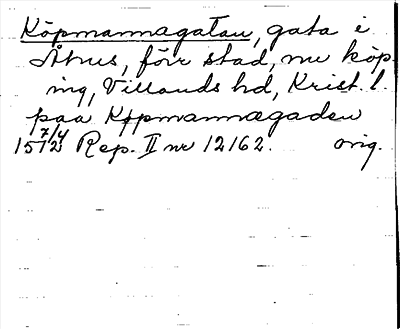 Köpmannagatan, gata i
Åhus, förr stad, nu köp-
ing, Villands hd, Krist. l.
paa Køpmannægaden
15 7/4 12 Rep. II nr 12162. orig.